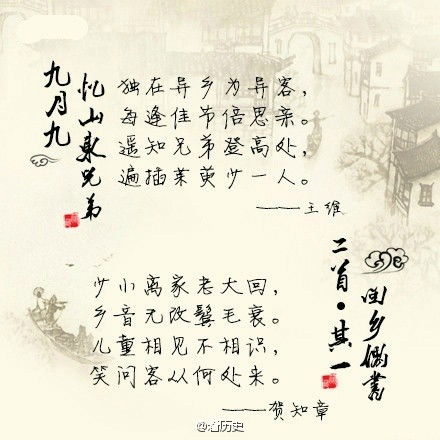 九月九
忆山东兄弟
独在异乡为异客，
每逢佳节倍思亲。
遥知兄弟登高处，
遍插茱萸少一人。
——王维
回乡偶书
二首·其一
少小离家老大回，
乡音无改鬓毛衰。
儿童相见不相识，
笑问客从何处来。
——贺知章
@看历史